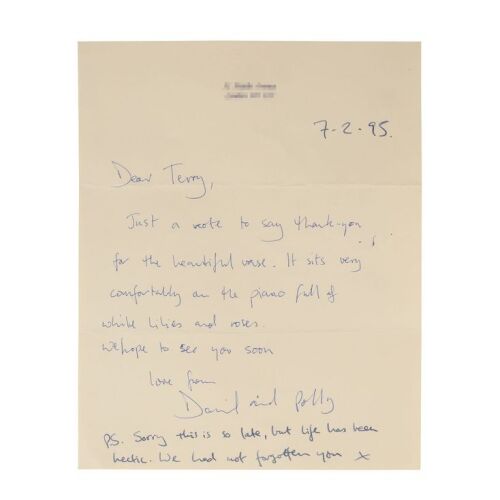 7-2-95.
Dear Terry,
Just a note to say thank-you
for the beautiful vase. It sits very
comfortably on the piano full of
white lilies and roses.
We hope to see you soon
love from
David and Polly
PS. Sorry this is so late, but life has been
hectic. We had not forgotten you x